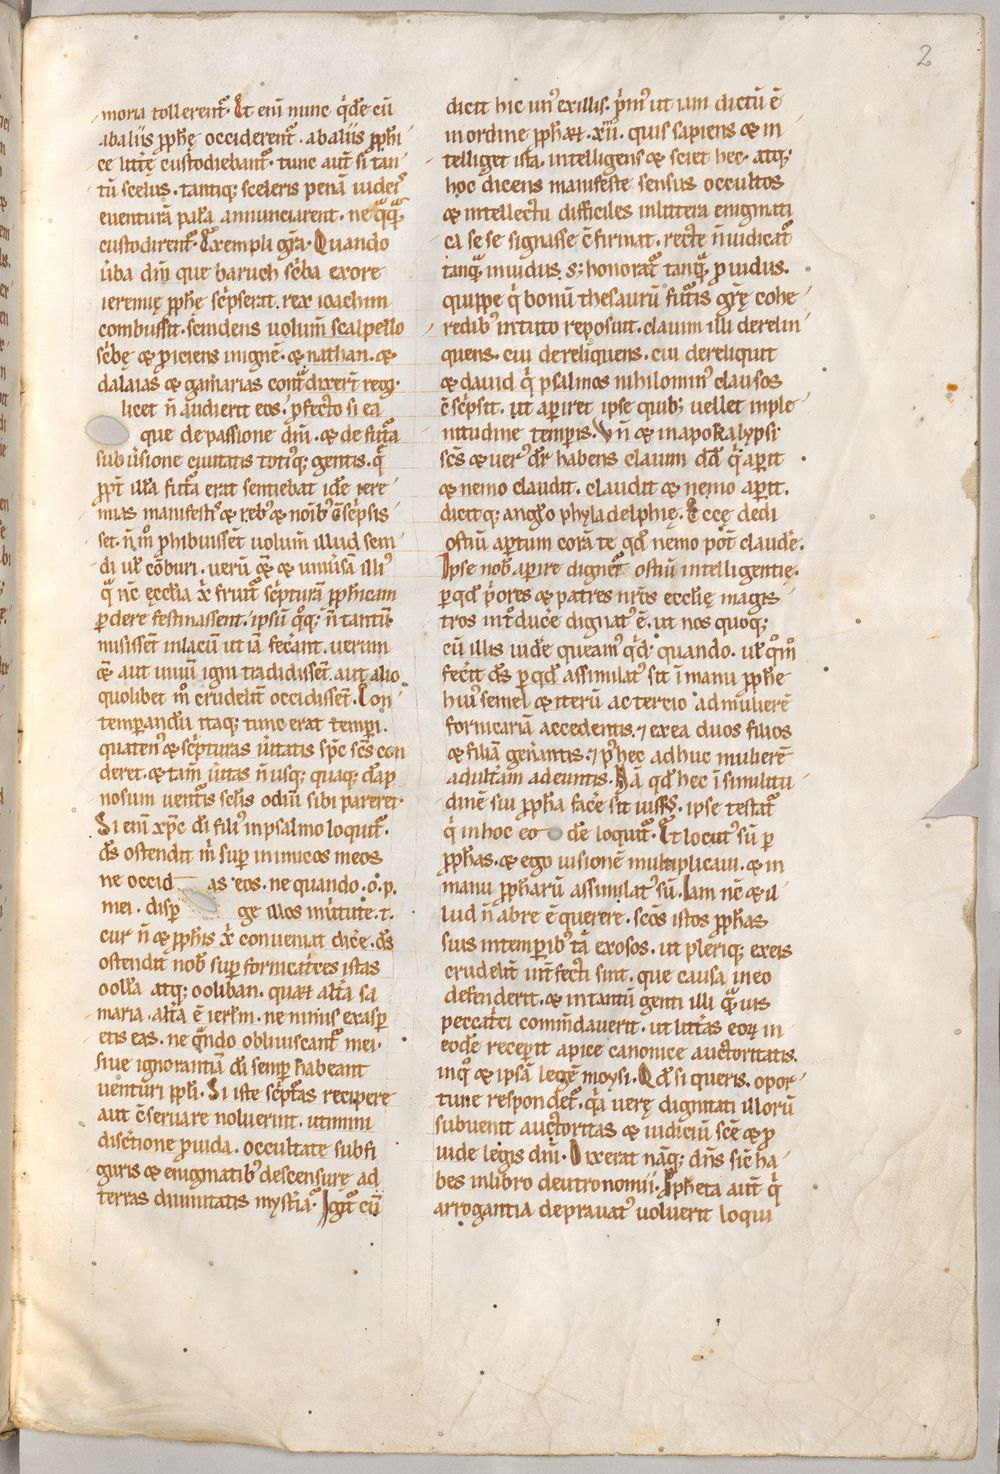 2
moria tollerent᷑. Et eni͂ nunc q͛de͂ cu͂
abaliis p̱phę occiderent᷑. abaliis p̱phi
ce litt͛ę custodiebant᷑. tunc aut͂ si tan
tu͂ scelus. tantiq; sceleris pena͂ iudeis
euentura͂ pala͂ annunciarent. ne
custodirent᷑. Exempli gr͂a. Quando
u͛ba dn͂i que baruch sc͛ba exore
ieremię p̱phe sc͛pserat. rex ioachim
combussit. scindens uolum͂ scalpello
sc͛bę & p̱iciens inigne͂. & nathan. &
dalaias & gamarias cont͛dixer͂t regi.
licet n͂ audierit eos. p̱fecto si ea
que de passione dn͂i. & de fut͛a
sub u͛sione ciuitatis totiq; gentis. q͛
pp͂t illa futa erat sentiebat ide͂ iere
mias manifest᷒ & reb᷒ & no͂ib᷒ c͂sc͛psis
set. n͂ m͛o p̱hibuisse͂t uolum͂ illud scin
di ul͛ co͂buri. ueru͂ & uniu͛sa͂ illi᷒
q͛ nc͂ ęccl͂ia x͛ fruit᷑ sc͛ptura͂ p̱pheticam
p̱dere festinassent. ipsu͂ q͛q; n͂ tantu͂
misisse͂t inlacu͂ ut ia͂ fec͛ant. uerum
aut uiuu͂ igni tradidisse͂t. aut alio
quolibet m͛o crudelit͛ occidisse͂t. Con
temperandu͂ itaq; tunc erat tempi.
quaten᷒ & sc͛pturas u͛itatis sp͂c sc͂s con
deret. & tam͂ u͛itas n͂ usq; quaq; d͂ap
nosum uent͛is sc͛lis odiu͂ sibi pareret.
Si eni͂ xp͂c di͂ fili᷒ inpsalmo loquit᷑.
d͂s ostendit m͛ sup inimicos meos
ne occid as eos. ne quando. o. p.
mei. disp ge illos inu͛tute. t.
cur n͂ & p̱phis x͛ conueniat dic͛e. d͂s
ostendit nob᷒ sup fornicat͛ces istas
oolla atq; ooliban. quaꝝ alt͛a sa
maria. alt͛a e͂ ierl͂m. ne nimis exasp
etis eas. ne q͛ndo obliuiscant᷑ mei.
siue ignorantia͂ di͂ semp habeant
uenturi pp͂li. Si iste sc͛ptas recipere
aut c͂seruare noluerint. utinmi
disc͛tione p̱uida. occultate subfi
guris & enigmatib᷒ descensure ad
terras diuinitatis myst͛ia᷑. Igit᷑ cu͂
dicit hic un᷒ exillis. p͛m᷒ ut iam dictu͂ e͂
inordine p̱phaꝝ. xii. quis sapiens & in
telliget ista. intelligens & sciet hec. atq;
hoc dicens manifeste sensus occultos
& intellectu difficiles inlittera enigmati
ca se se signasse c͂firmat. recte n͂ iudicat᷑
tanq͛ inuidus. s; honorat᷑ tanq͛ p̱uidus.
quippe q͛ bonu͂ thesauru͂ fut͛is gr͂ę cohe
redib᷒ intuto reposuit. clauim illi derelin
quens. cui dereliquens. cui dereliquit
& dauid q͛ psalmos nihilomin᷒ clausos
c͂sc͛psit. ut ap̱iret ipse quib; uellet inple
nitudine temp̱is. Vn͂ & inapokalypsi
sc͂s & uer᷒ dr͂ habens clauim d͂d q͛ ap̱it
& nemo claudit. claudit & nemo ap̱it.
dicitq; ang͛lo phyladelphię. Eccę dedi
ostiu͂ ap̱tum cora͂ te qd͂ nemo pot͂ claud͛e.
Ipse nob᷒ ap̱ire dignet᷑ ostiu͂ intelligentię.
p̱qd͂ p͛ores & patres nr͂os ecclię magis
tros int͛duc͛e dignat᷒ e͂. ut nos quoq;
cu͂ illis uide͂ queam᷒ q͛d; quando. ul͛ q͛m͛o
fec͛it d͂s p̱qd͂ assimilat᷒ sit i͂ manu p̱phe
hui᷒ semel & iteru͂ ac tercio ad mulie͛re͂
fornicaria͂ accedentis. ⁊ exea duos filios
& filia͂ gen͛antis. ⁊ p᷒ hec adhuc muliere͂
adult͛am adeuntis. Na͂ qd͂ hec i͂ similitu
dine͂ sui p̱pha fac͛e sit iuss᷒. ipse testat᷑
q͛ inhoc eo de͂ loquit᷑. Et locut᷒ su͂ p̱
p̱phas. & ego uisione͂ multiplicaui. & in
manu p̱pharu͂ assimilat᷒ su͂. Iam ne͂ & il
lud n͂ abre e͂ querere. sc͂os istos p̱phas
suis intemp̱ib᷒ ta͂ exosos. ut pleriq; exeis
crudelit͛ int͛fecti sint. que causa ineo
defenderit. & intantu͂ genti illi q͛uis
peccat͛ci comm͂dauerit. ut litt͛as eoꝝ in
eode͂ recep̱it apice canonice auctoritatis.
inq͛o & ipsa͂ lege͂ moysi. Qd͂ si queris. opor
tune respondet᷑. q͛a uerę dignitati illoru͂
subuenit auctoritas & iudiciu͂ sc͂e & p̱
uide legis dn͂i. Dixerat na͂q; dn͂s sic͛ ha
bes inlibro deutronomii. Propheta aut͂ q͛
arrogantia deprauat᷒ uoluerit loqui